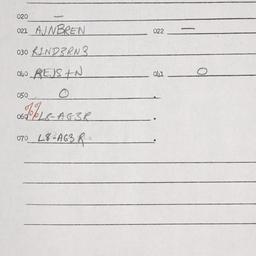 020 —
021 AJNBREN 022 —
030 RINDZRN3
040 REJS+N 041 0
050 0 .
060 %L8-AG3R .
070 L8-AG3R .